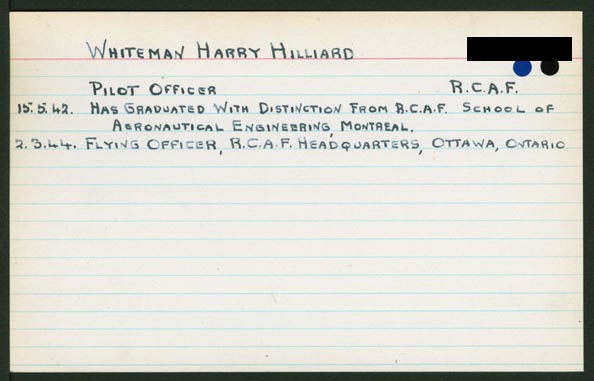 WHITEMAN HARRY HILLIARD
PILOT OFFICER R.C.A.F.
15.5.42. HAS GRADUATED WITH DISTINCTION FROM R.C.A.F. SCHOOL OF
AERONAUTICAL ENGINEERING, MONTREAL.
2.3.44. FLYING OFFICER, R.C.A.F. HEADQUARTERS, OTTAWA, ONTARIO